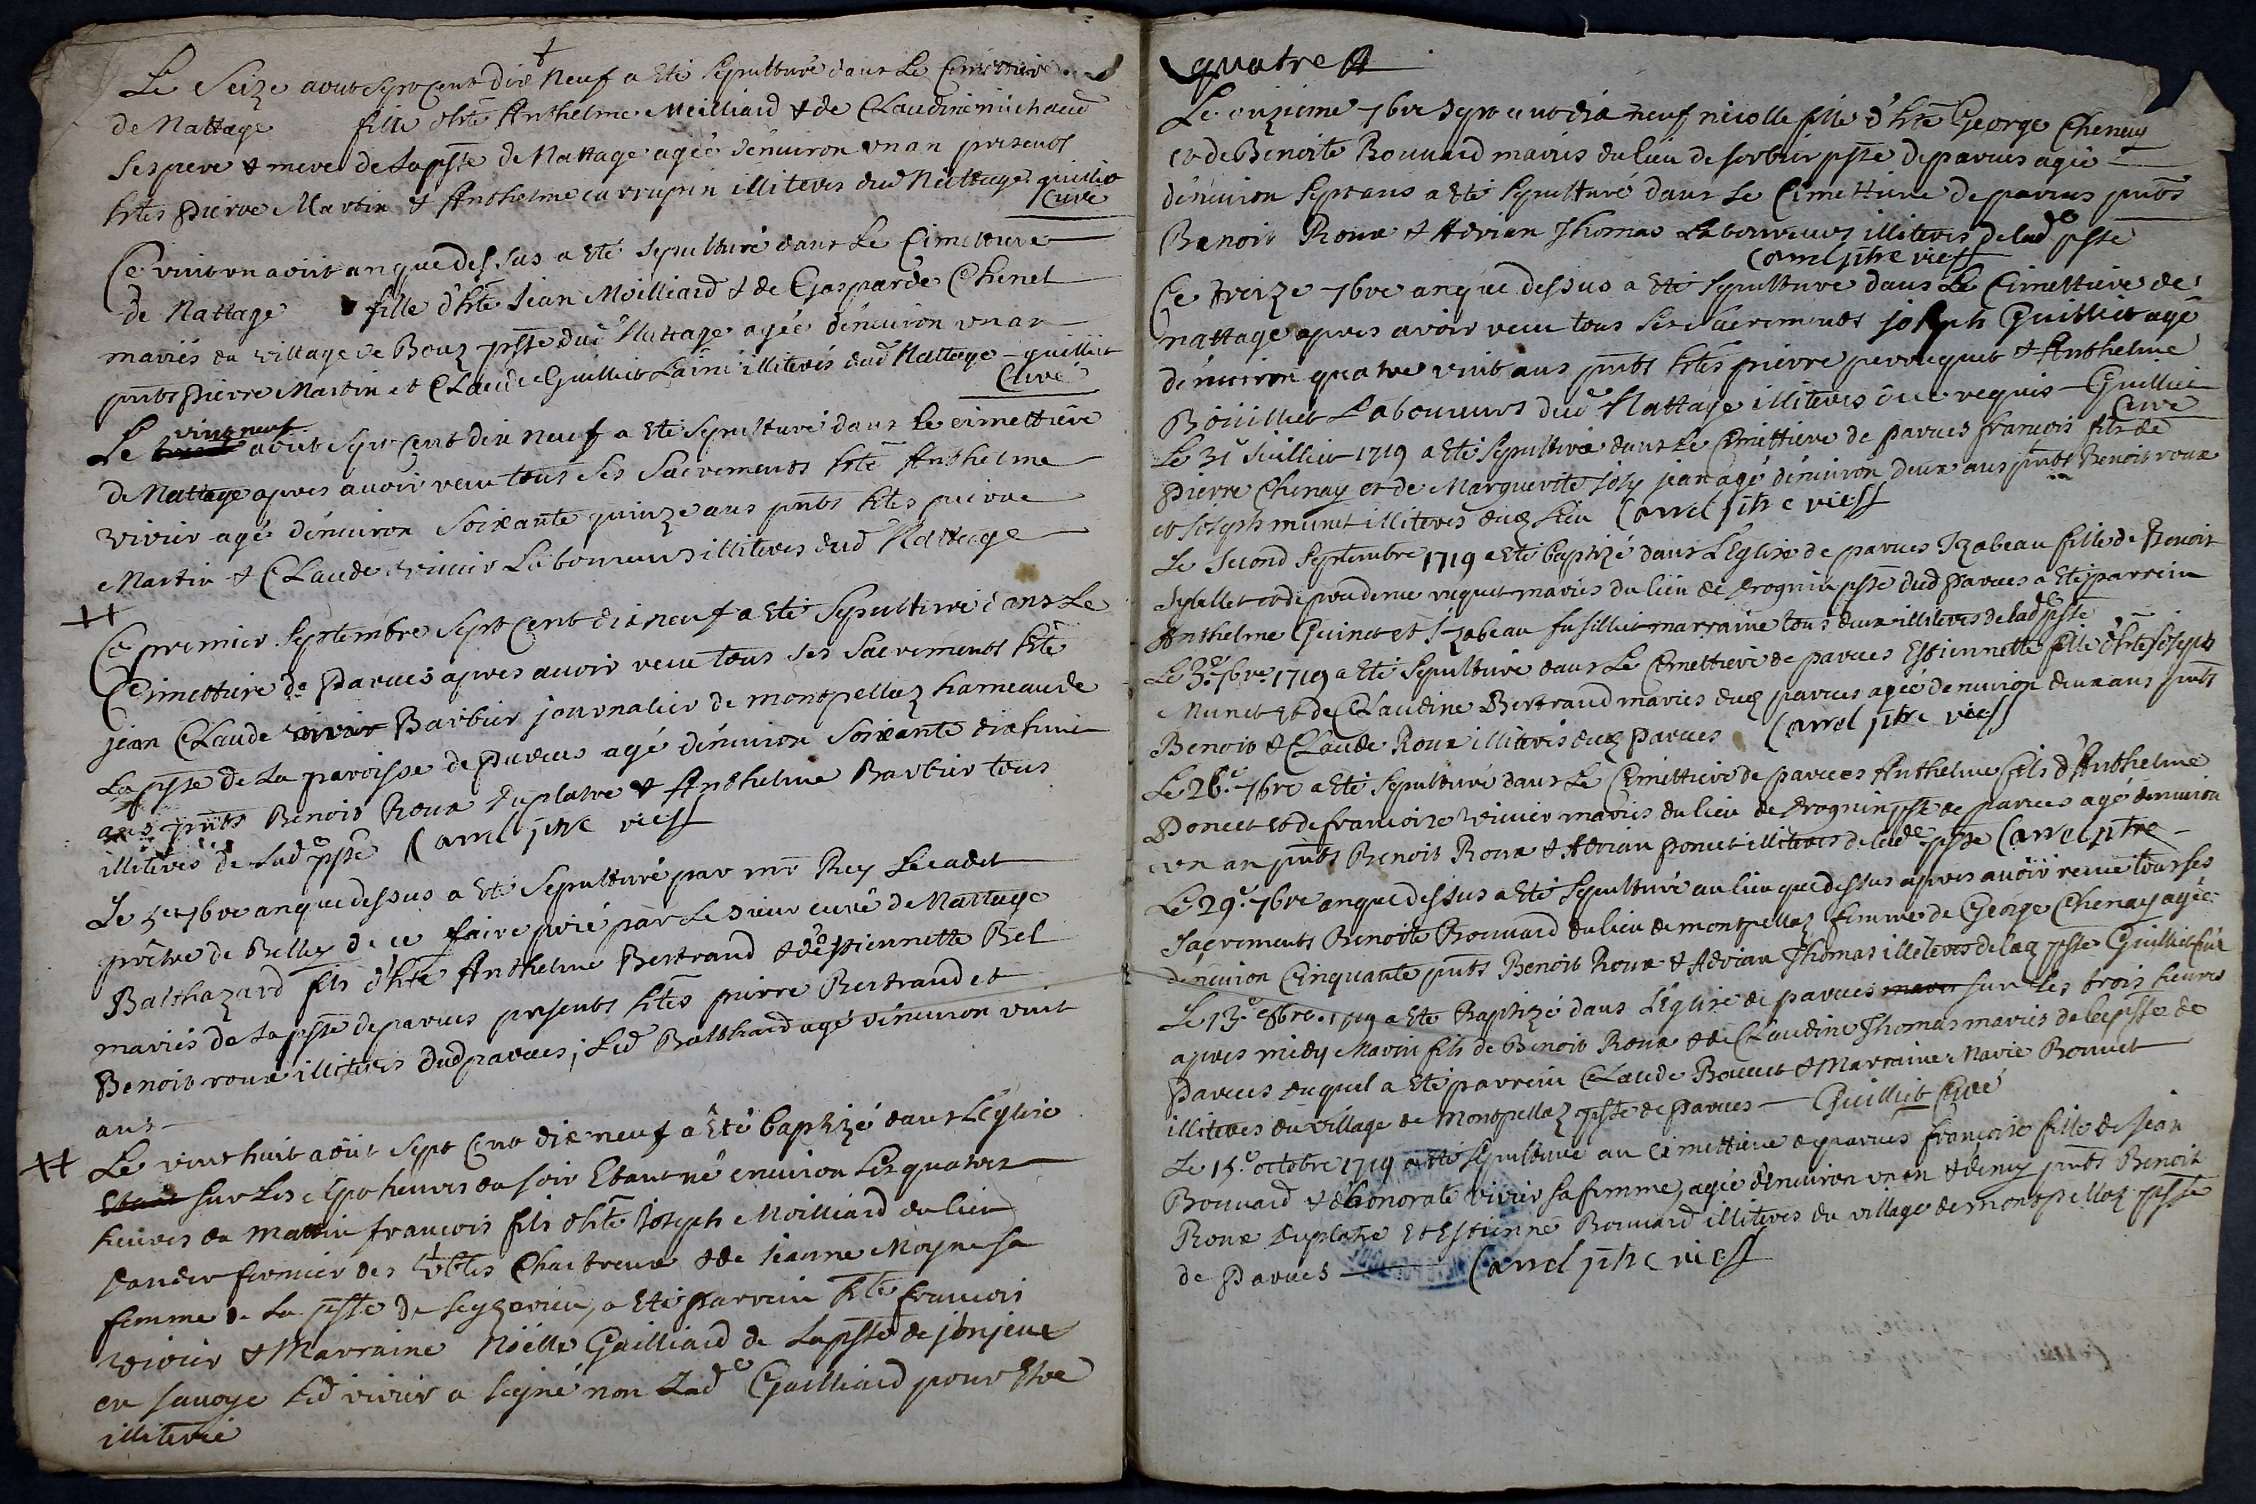 Le Seize aout sept Cent Dix Neuf a Eté sepulturé dans Le Cimettiere
de Nattage fille d'hte Anthelme Meilliard & de CLaudine michaud
ses pere & mere de La psse de Nattage agée d'enuiron vn an presents
htes pierre Martin & Anthelme carrupin illiterés dud Nattage guilliet
Curé
Ce vint vn aoüt an que dessus a Eté sepulturé dans Le Cimettiere
de Nattage fille d'hte Jean Moilliard & de Gasparde Chenel
mariés du village de Bouz psse dud Nattage agée d'enuiron vn an
pnts pierre Martin et CLaude Guilliet Lainé illiterés dud Nattage - guilliet
Curé
vint neuf
Le aout sept Cent dix neuf a Eté sepulturé dans Le cimettiére
de Nattage apres auoir receu tous ses sacrements hte Anthelme
vivier agé d'enuiron soixante quinze ans pnts htes pierre
Martin & CLaude vivier Laboureurs illiterés dud Nattage
Ce premier septembre sept Cent dix neuf a Eté sepulturé dans Le
Cimettiere de parues apres auoir receu tous ses sacrements hte
jean CLaude vivier Barbier journalier de montpellaz hameau de
La psse de La paroisse de parues agé d'enuiron soixante dix huit
ans pnts Benoit Roux duplatre & Anthelme Barbier tous
illiterés de Lad psse Carrel ptre vicss
Le 5e 7bre an que dessus a Eté sepulturé par mr Rey Le cadet
prêtre de Belley de ce faire prié par Le sieur curé de Nattage
Balthazard fils d'hte Anthelme Bertrand & d'Estiennette Bel
mariés de La psse de parues presents htes pierre Bertrand et
Benoit roux illiterés dud parues, Led Balthard agé d'enuiron vint
ans
Le vint huit aoüt sept Cent dix neuf a Eté baptizé dans L'Eglise
Etant sur Les sept heures du soir Etant né enuiron Les quatre
heures du mattin francois fils d'hte Joseph Moilliard du lieu
dandert fermier des Chartreux & de jeanne Moyne sa
femme de La psse de seyzerieu, a Eté parrein hte francois
vivier & Marraine Noëlle Gailliard de La psse de jonjeux
en sauoye Led vivier a signé non Lade Gailliard pour Etre
illiterée
quatre
Le onzieme 7bre sept cent dix neuf nicolle fille d'hte George Chenay
et de Benoite Bouuard mariés du lieu de sorbier psse de parues agée
d'enuiron sept ans a Eté sepulturé dans Le Cimettiere de parues pnts
Benoit Roux & Adrian Thomas Laboureurs illiterés de Lade psse
Carrel ptre vicss
Ce treize 7bre an que dessus a Eté sepulturé dans Le Cimettiere de
nattage apres avoir receu tous ses sacrements joseph Guilliet agé
d'enuiron quatre vint ans pnts htes pierre perruquet & Anthelme
Boüilliet Laboureurs dud Nattage illiterés de ce requis - Guilliet
Curé
Le 31e Juilliet 1719 a Eté sepulturé dans Le Cimettiere de parues francois fils de
pierre Chenay et de Marguerite joly jean agé d'enuiron deux ans pnts Benoit roux
et joseph munet illiterés dud Lieu Carrel ptre vicss
Le second septembre 1719 a Eté baptizé dans L'Eglise de parues Izabeau fille de Benoit
sybillet et de prudence reguet mariés du lieu de drognin psse dud parues a Eté parrein
Anthelme Guinet et Izabeau fusilliet marraine tous deux illiterés de lade psse
Le 3e 7bre 1719 a Eté sepulturé dans Le Cimettiere de parues Estiennette fille d'hte joseph
Munet et de CLaudine Bertrand mariés dud parues agée d'enuiron deux ans pnts
Benoit & CLaude Roux illiterés dud parues Carrel ptre vicss
Le 26e 7bre a Eté sepulturé dans Le Cimettiere de parues Anthelme fils d'Anthelme
Poncet et de francoise vivier mariés du lieu de drognin psse de parues agé d'enuiron
vn an pnts Benoit Roux & Adrian poncet illiterés de lade psse Carrel ptre
Le 29e 7bre an que dessus a Eté sepulturé au lieu que dessus apres auoir receu tous ses
sacrements Benoite Bouuard du lieu de montpellaz femme de George Chenay agée
d'enuiron Cinquante pnts Benoit Roux & Adrian Thomas illiterés de lad psse Guilliet Curé
Le 13e 8bre 1719 a Eté Baptizé dans L'Eglise de parues sur les trois heures
apres midy Marin fils de Benoit Roux & de CLaudine Thomas mariés de la psse de
parues duquel a Eté parrein CLaude Bouuet & Marraine Marie Bouuet
illiterés du village de Montpellaz psse de parues - Guilliet Curé
Le 15e octobre 1719 a Eté sepulturé au Cimettiere de parues françoise fille de jean
Bouuard & d'honorate vivier sa femme, agée d'enuiron vn an & demy pnts Benoit
Roux duplatre Et Estienne Bouuard illiterés du village de montpellaz psse
de Parues Carrel ptre vicss